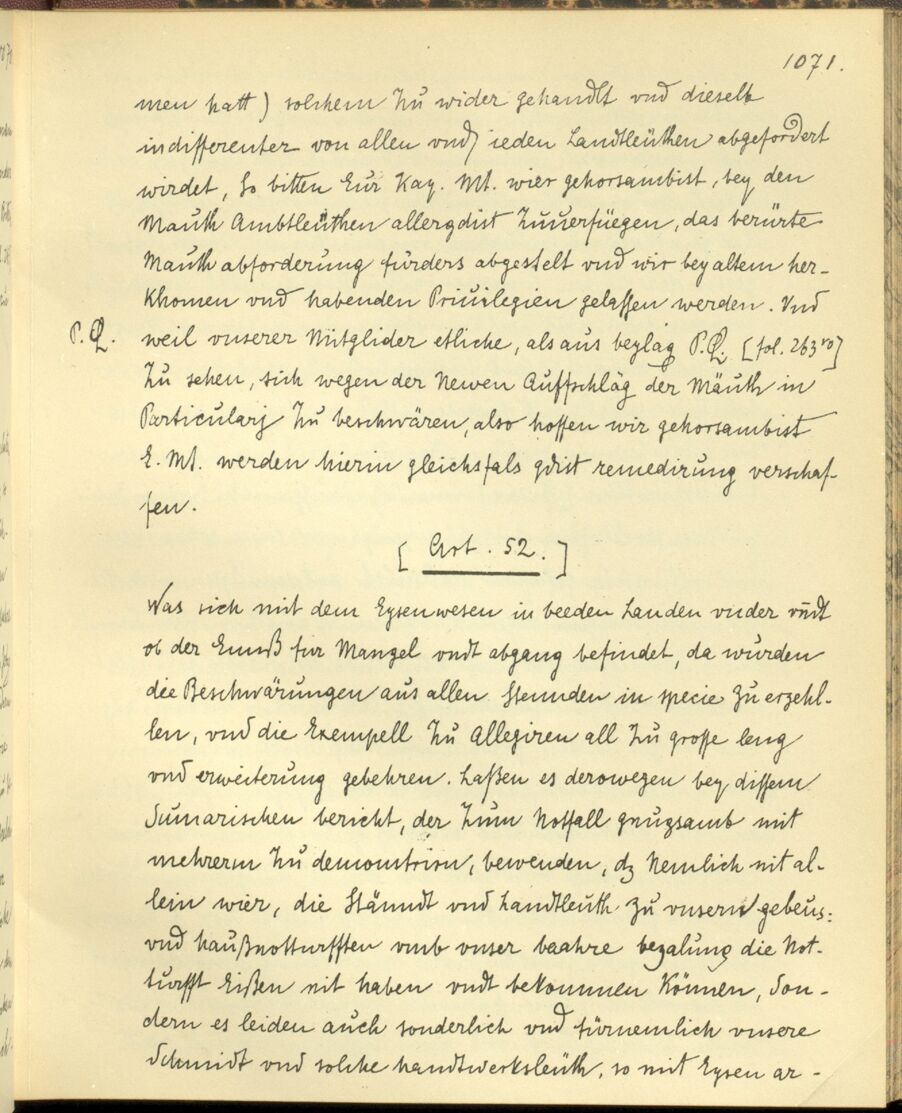 1071.
men hatt) solchem Zu wider gehandlt vnd dieselb
indifferenter von allen vnd ieden Landtleüthen abgefordert
wirdet, So bitten Eur Kay. Mt. wier gehorsambist, bey den
Mauth Ambtleüthen allergdist Zuuerfüegen, das berürte
Mauth abforderung fürders abgestelt vnd wir bey altem her-
Khomen vnd habenden Priuilegien gelassen werden. Vnd
P. Q. weil vnserer Mitglider etliche, als aus beylag P. Q. [fol. 263 ro]
Zu sehen, sich wegen der Newen Auffschläg der Mäuth in
Particularj Zu beschwären, also hoffen wir gehorsambist
E. Mt. werden hierin gleichsfals gdist remedirung verschaf-
fen.
[Art. 52.]
Was sich mit dem Eysenwesen in beeden Landen vnder vndt
ob der Ennß für Mangel vndt abgang befindet, da würden
die Beschwärungen aus allen Stennden in specie Zu erzehl-
len, vnd die Exempell Zu Allegiren all Zu grosse leng
vnd erweiterung gebehren. Laßen es derowegen bey dissem
Sumarischen bericht, der Zum Notfall gnugsamb mit
mehrerm Zu demonstrirn, bewenden, dz Nemlich nit al-
lein wier, die Stänndt vnd Landtleuth Zu vnsern gebeus:
vnd haußnotturfften vmb vnser baahre bezalung die Not-
turfft Eißen nit haben vndt bekommen Können, Son-
dern es leiden auch sonderlich vnd fürnemlich vnsere
Schmidt vnd solche handtwerksleüth, so mit Eysen ar-